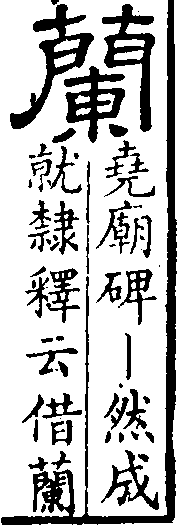 蘭
堯廟碑｜然成
就隸釋云借蘭